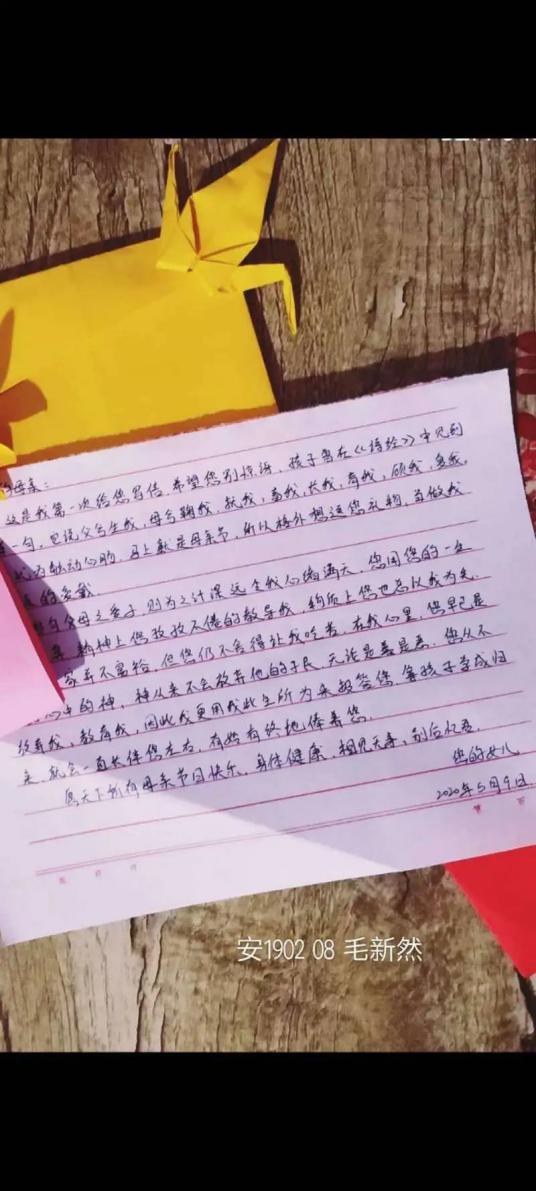 的母亲：
这是我第一次给您写信，希望您别惊讶。孩子曾在《诗经》中见到
一句，它说父兮生我，母兮鞠我，抚我，畜我，长我，育我，顾我，复我。
为触动心田，马上就是母亲节，所以格外想送您礼物，当做我
的爱戴。
父母之爱子，则为之计深远令我心绪满天，您用您的一生
精神上您孜孜不倦的教导我，物质上您也总以我为先。
家并不富裕，但您仍不舍得让我吃苦，在我心里，您早已是
心中的神，神从来不会放弃他的子民，无论是善是恶，您从不
放弃我，教育我，因此我更用我此生所为来报答您，等孩子学成归
来，就会一直长伴您左右，有始有终地侍着您。
愿天下所有母亲节日快乐，身体健康，相见无事，别后
您的女儿
2020年5月9日
安1902 08 毛新然